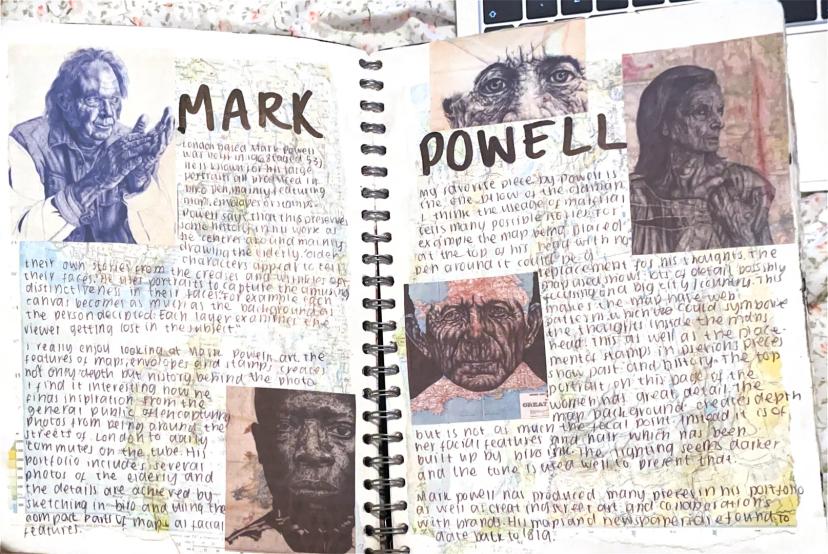 MARK
London based Mark Powell
was born in 1968
He is known for his large
portraits all produced in
biro pen, mainly featuring
map, envelopes or stamps.
Powell says that this preserves
some history in my work as
he centres around mainly
drawing the elderly, 'older
characters appear to tell
their own stories from the creases and wrinkles of
their faces. He uses portraits to capture the
distinctiveness in their faces. For example each
canvas becomes as much as the background as
the person depicted. Each layer examines the
viewer getting lost in the subject."
I really enjoy looking at Mark Powell's art. The
features of maps, envelopes and stamps creates
not only depth but history behind the photo.
I find it interesting how he
finds inspiration from the
general public often capturing
photos from being around the
streets of London to daily
commutes on the tube. His
portfolio includes several
photos of the elderly and
the details are achieved by
sketching in biro and using the
compact parts of maps as facial
features.
POWELL
My favorite piece by Powell is
the one below of the
I think the useage of material
tells many possible stories. For
example the map being placed
at the top of his head with no
pen around it could be a
replacement for his thoughts. The
map used shows lots of detail possibly
focusing on a big city/country. This
makes the map have web
patterns which could symbolise
the thoughts inside the mans
head. This as well as the place-
ment of stamps in previous pieces
show past and history. The top
portrait on this page of the
women has great detail. The
map background creates depth
but is not as much the focal point. Instead it is of
her facial features and hair which has been
built up by biro ink. The lighting seems darker
and the tone is used well to present that.
GREAT
Mark Powell has produced many pieces in his portfolio
as well as creating street art and collaborations
with brands. His maps and newspapers are found to
date back to 1819.